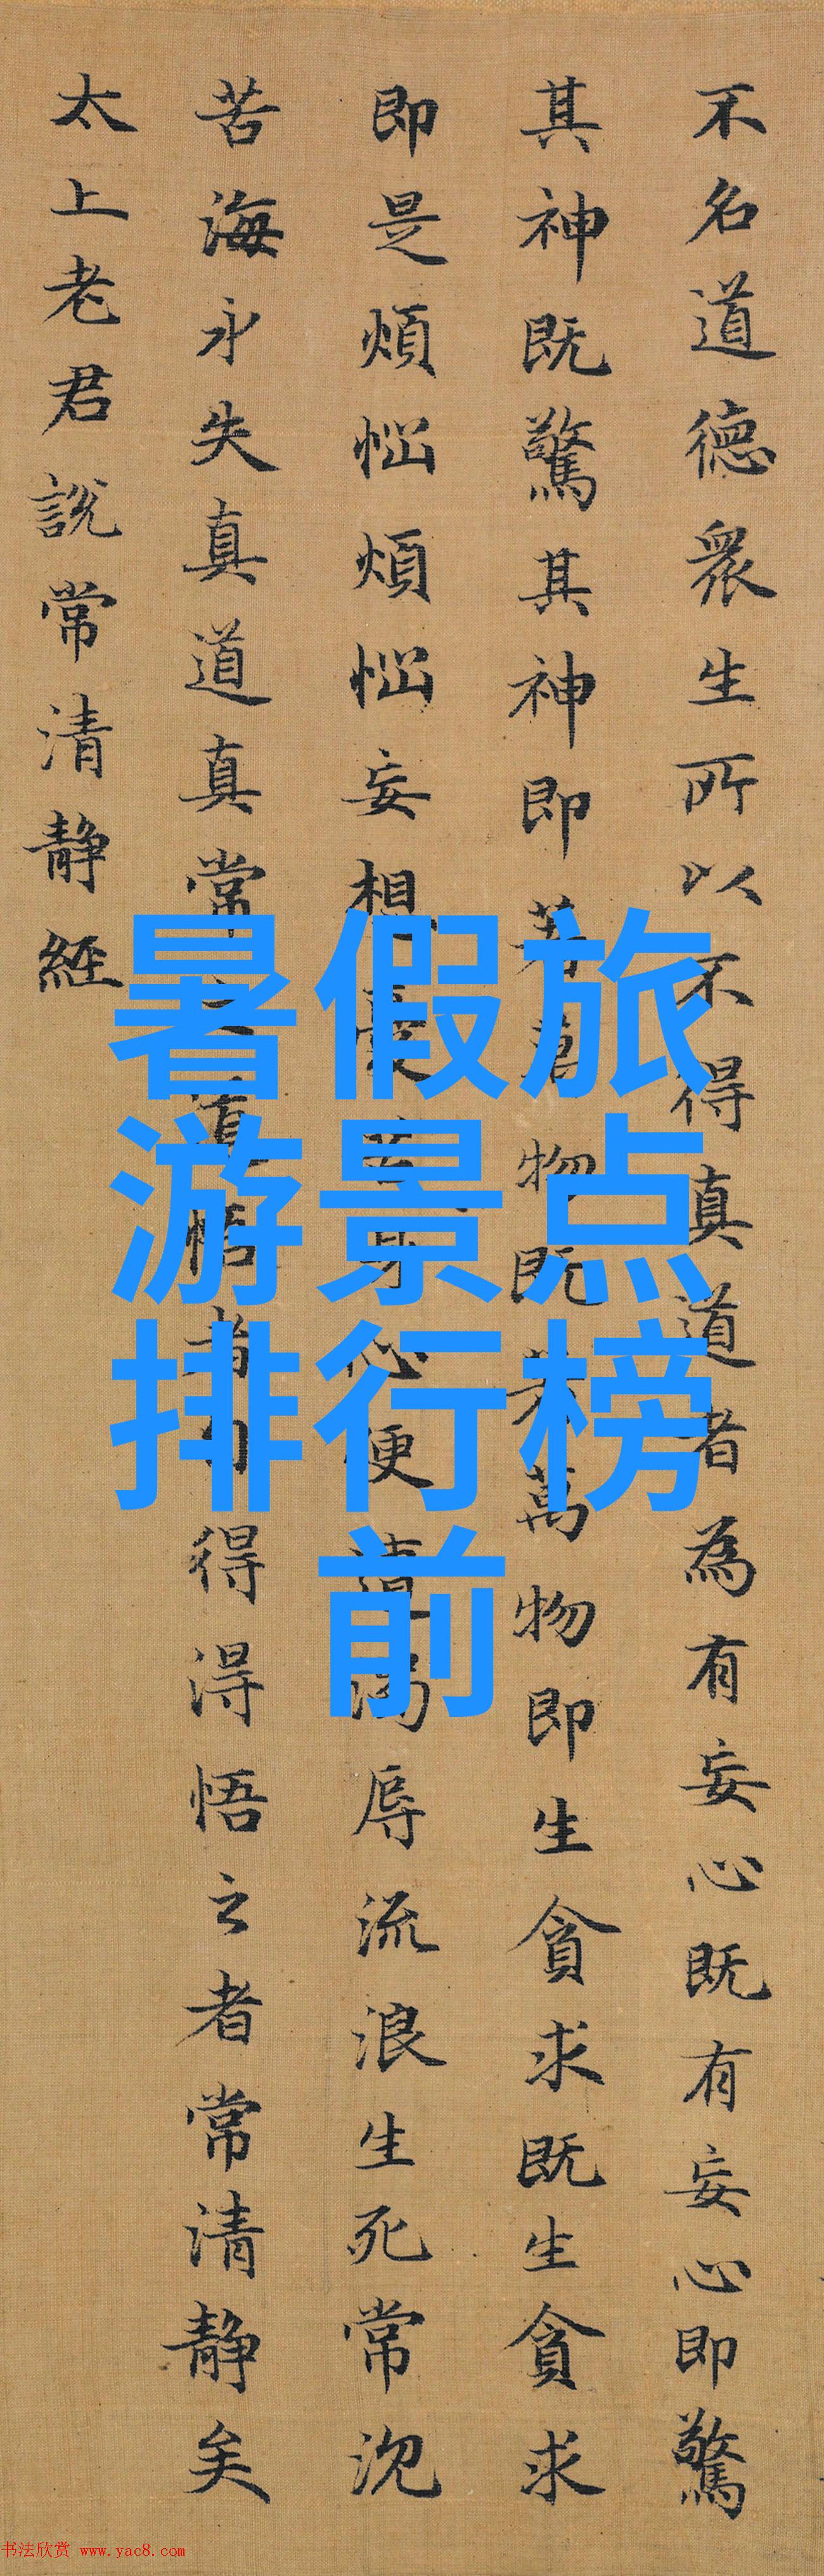 不名道德衆生所以不得真道者為有妄心既有妄心即驚
其神既驚其神即著萬物既著萬物即生貪求既生貪求
即是煩惱煩惱妄想憂苦身心便遭濁辱流浪生死常沉
苦海永失真道真常之道悟者自得得悟之者常清静矣
太上老君說常清静經
暑假旅
游景点
排行榜
前
书法欣赏 www.yac8.com